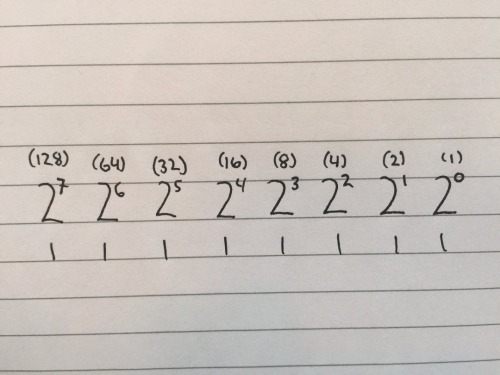 (128) (64) (32) (16) (8) (4) (2) (1)
2⁷ 2⁶ 2⁵ 2⁴ 2³ 2² 2¹ 2⁰
1 1 1 1 1 1 1 1